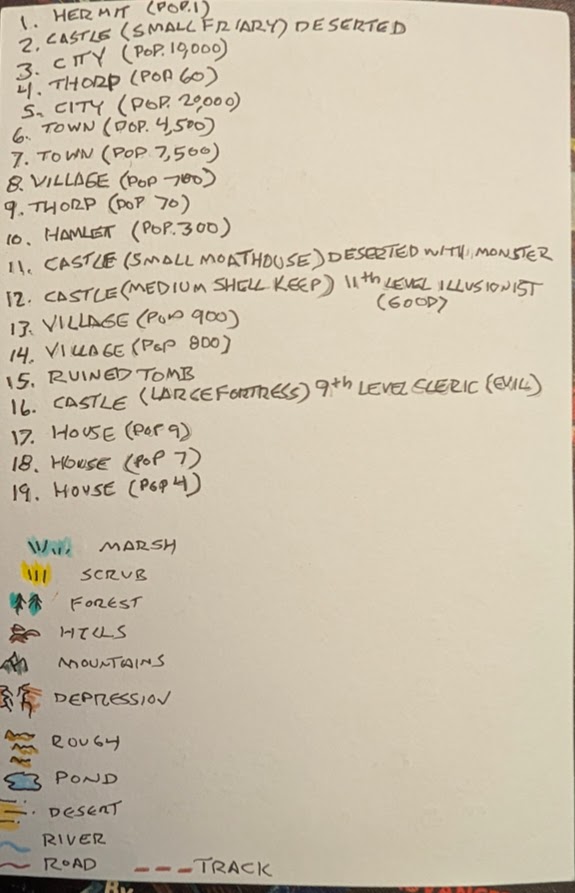 1. HERMIT (POP.1)
2. CASTLE (SMALL FRIARY) DESERTED
3. CITY (POP. 19,000)
4. THORP (POP 60)
5. CITY (POP. 20,000)
6. TOWN (POP. 4,500)
7. TOWN (POP 7,500)
8. VILLAGE (POP 700)
9. THORP (POP 70)
10. HAMLET (POP. 300)
11. CASTLE (SMALL MOATHOUSE) DESERTED WITH MONSTER
12. CASTLE (MEDIUM SHELL KEEP) 11th LEVEL ILLUSIONIST
(GOOD)
13. VILLAGE (POP 900)
14. VILLAGE (POP 800)
15. RUINED TOMB
16. CASTLE (LARGE FORTRESS) 9th LEVEL CLERIC (EVIL)
17. HOUSE (POP 9)
18. HOUSE (POP 7)
19. HOUSE (POP 4)
MARSH
SCRUB
FOREST
HILLS
MOUNTAINS
DEPRESSION
ROUGH
POND
DESERT
RIVER
ROAD --- TRACK